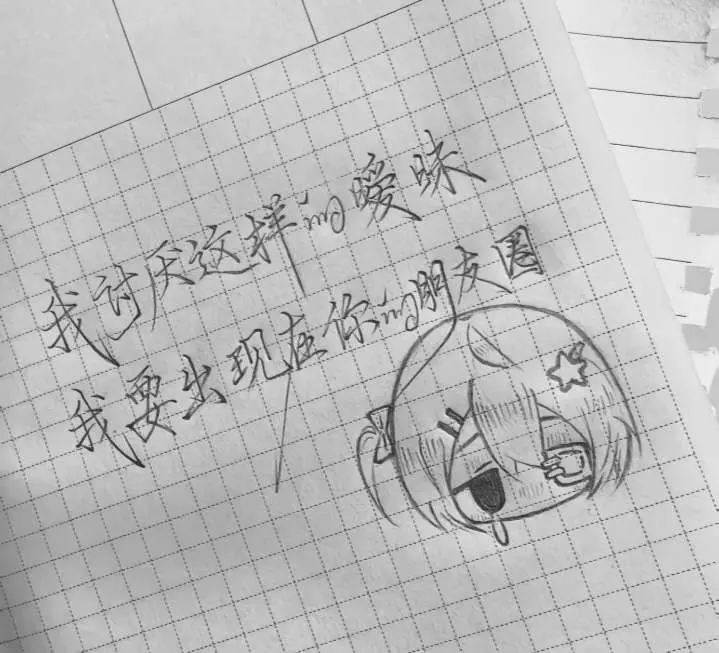 我讨厌这样的暧昧
我要出现在你的朋友圈